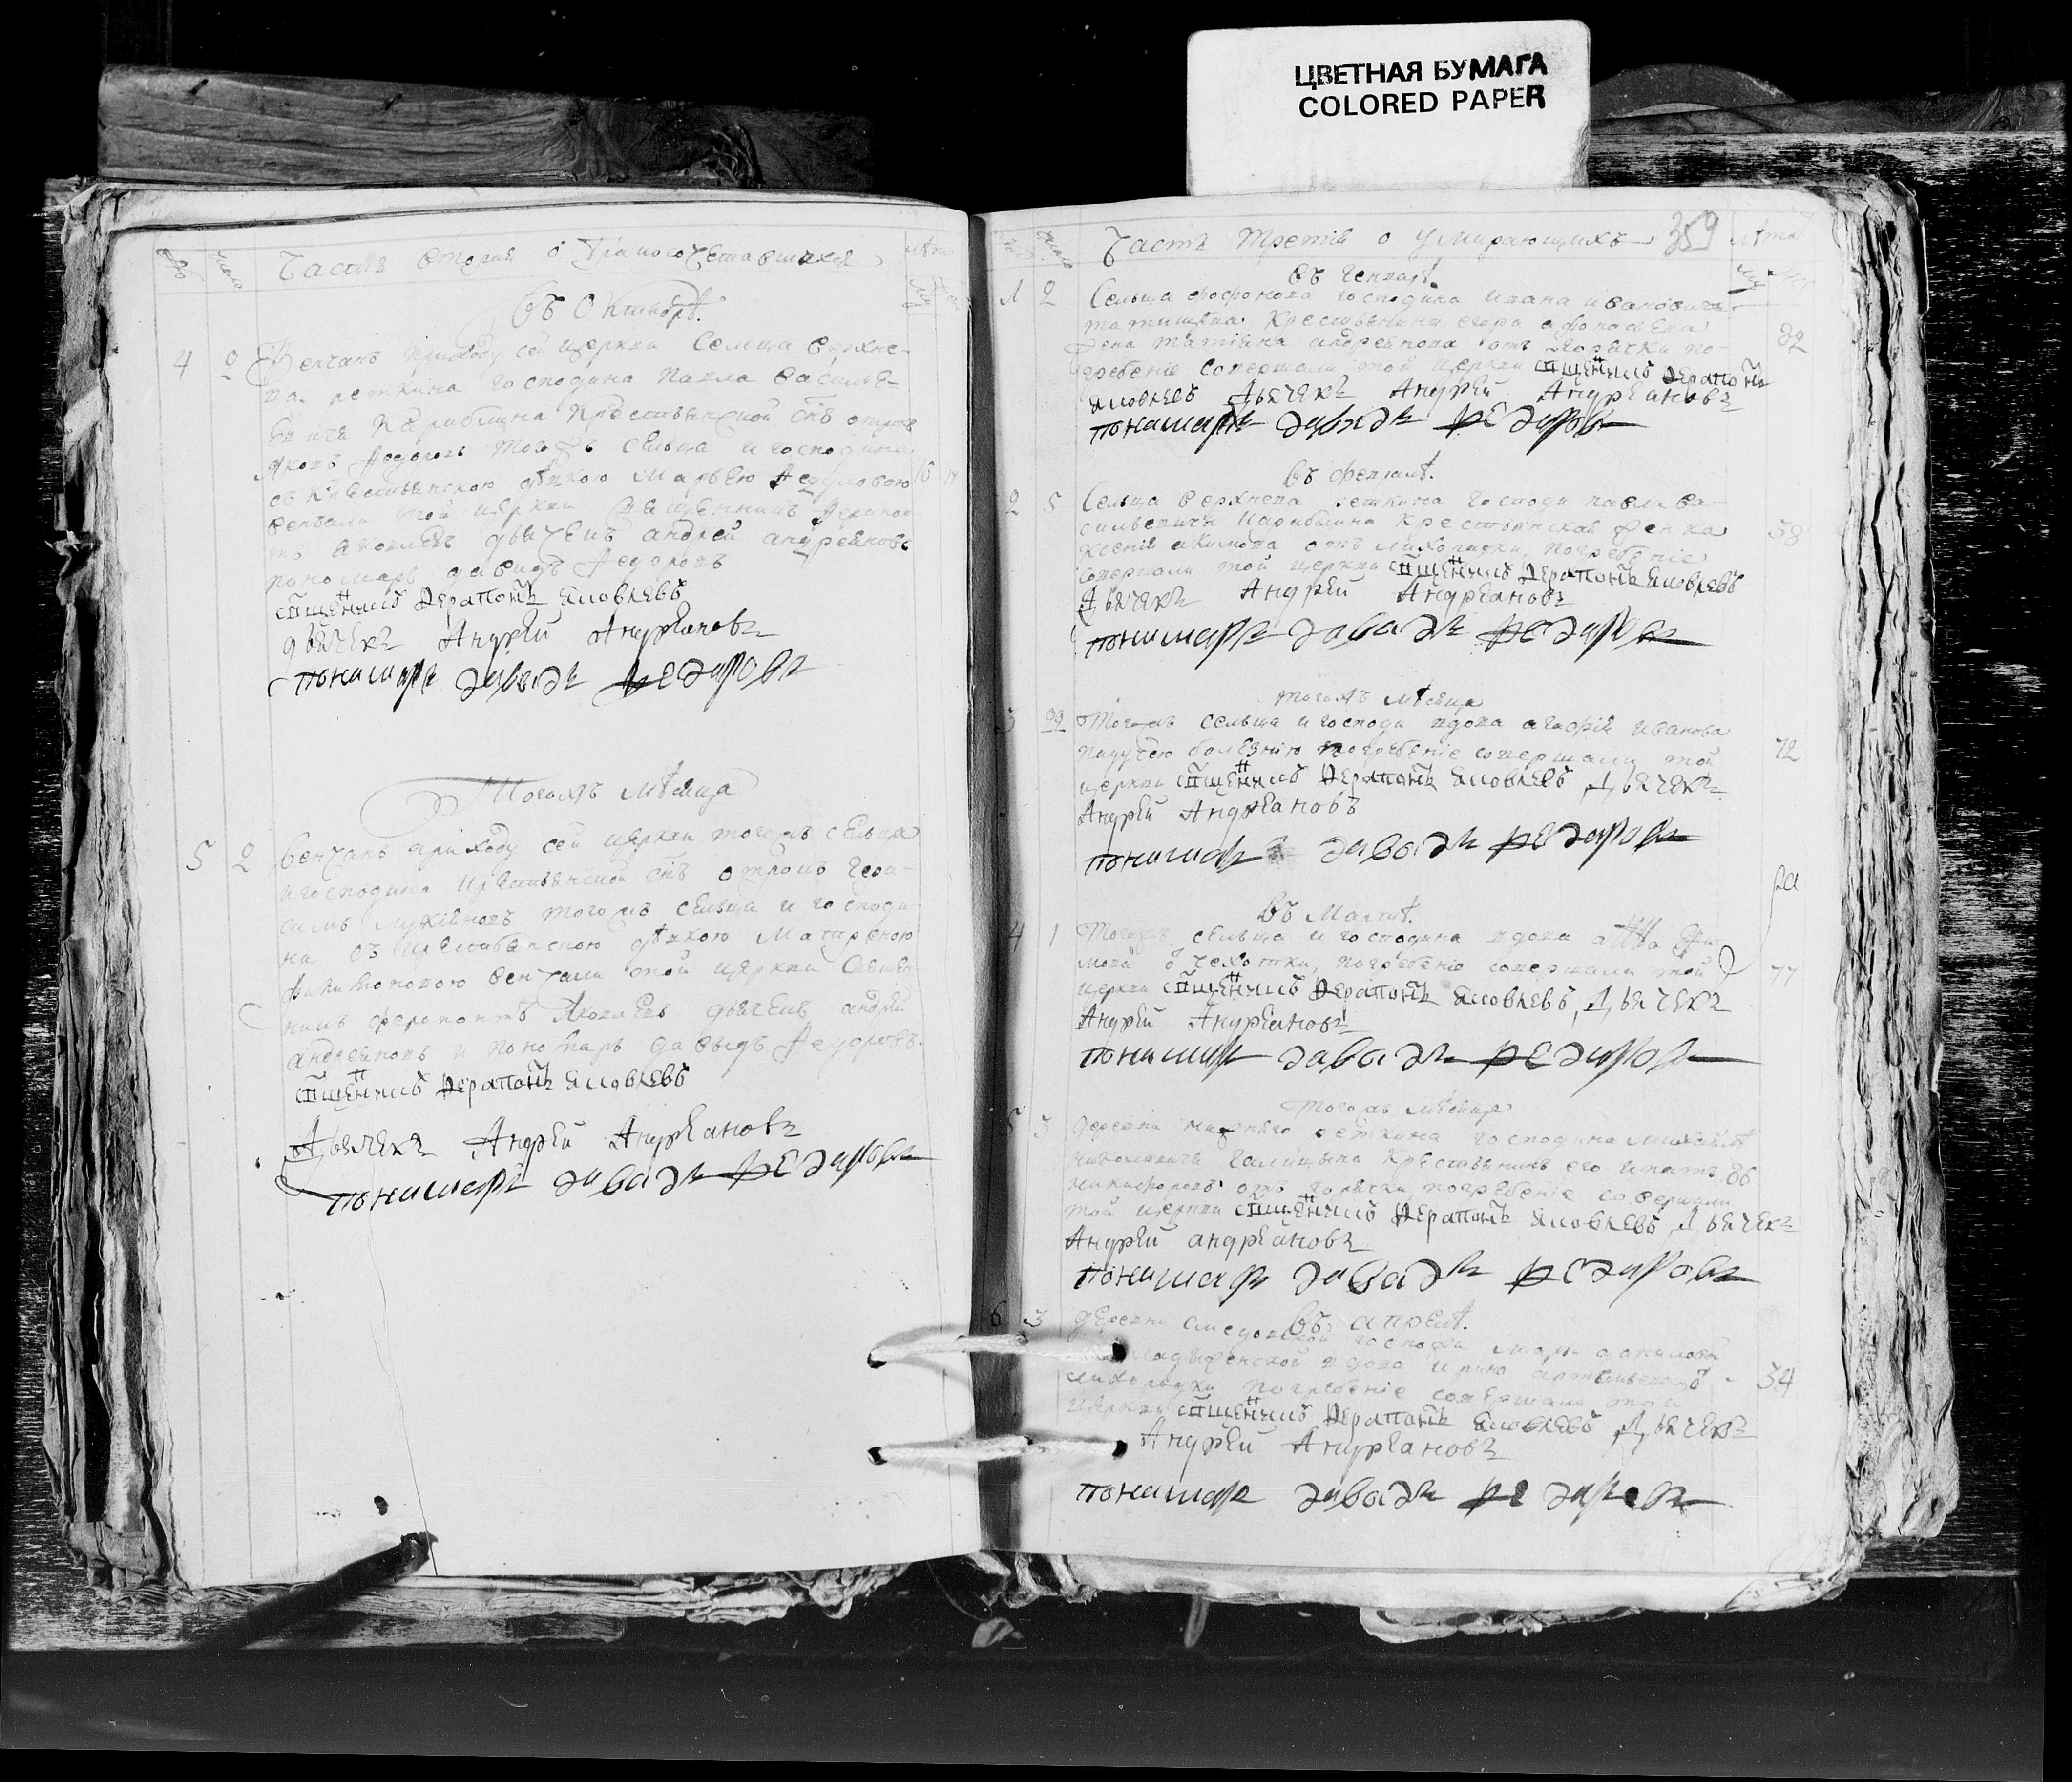 ЦВЕТНАЯ БУМАГА
COLORED PAPER
Часть вторая о бракосочетавшихся
въ Октябрѣ.
4 2 Венчанъ приходу сей церкви Сельца верхне-
ва реткина господина Павла василье-
вича Карабьина крестьянской снъ отрокъ
яковъ Федоровъ тогожъ сельца и господина
съ крестьянскою дѣвкою Марьею
венчали той церкви священникъ Ферапон-
тъ яковлевъ дьячекъ андрей андреяновъ
пономарь давыдъ Федоровъ
сщенникъ Ферапонтъ Яковлевъ
дьячекъ Андрей Андреановъ
пономарь давыдъ федоровъ
Тогожъ мѣсяца
5 2 венчанъ приходу сей церкви тогожъ сельца
и господина крестьянской снъ отрокъ Гера-
симъ тогожъ сельца и господи-
на съ крестьянскою дѣвкою Матреною
венчали той церкви Священ-
никъ ферапонтъ Яковлевъ дьячекъ андрей
андреяновъ и пономарь давыдъ Федоровъ.
сщенникъ Ферапонтъ Яковлевъ
Дьячекъ Андрей Андреановъ
пономарь давыдъ федоровъ
Часть третія о умирающихъ 359 лѣта
въ Генварѣ.
1 2 Сельца господина ивана ивановича
татищева крестьянина егора афонасьева
жена татіяна андреянова отъ горячки по- 32
гребеніе совершали той церкви сщенникъ Ферапонтъ
Яковлевъ Дьячекъ Андрей Андреановъ
пономарь давыдъ федоровъ
въ февралѣ.
2 5 Сельца верхнева реткина господина павла ва-
сильевича Карабьина крестьянская
ксенія акимова отъ лихорадки, погребеніе 38
совершали той церкви сщенникъ Ферапонтъ Яковлевъ
Дьячекъ Андрей Андреановъ
пономарь давыдъ федоровъ
тогожъ мѣсяца
3 22 Тогожъ сельца и господина вдова агафія иванова
падучею болезнію погребеніе совершали той 72
церкви сщенникъ Ферапонтъ Яковлевъ Дьячекъ
Андрей Андреановъ
пономарь давыдъ федоровъ
въ Мартѣ.
4 1 Тогожъ сельца и господина вдова
чехотки, погребеніе совершали той 77
церкви сщенникъ Ферапонтъ Яковлевъ, Дьячекъ
Андрей Андреановъ
пономарь давыдъ федоровъ
Тогожъ мѣсяца
5 3 деревни нижнего реткина господина Михайла
николаевича Галицына крестьянинъ его игнатъ 86
никифоровъ отъ горячки, погребеніе совершали
той церкви сщенникъ Ферапонтъ Яковлевъ, Дьячекъ
Андрей андреановъ
пономарь давыдъ федоровъ
въ апрелѣ.
6 3 деревни госпожи
вдова 34
лихорадки погребеніе совершали той
церкви сщенникъ Ферапонтъ Яковлевъ, Дьячекъ
Андрей Андреановъ
пономарь давыдъ федоровъ